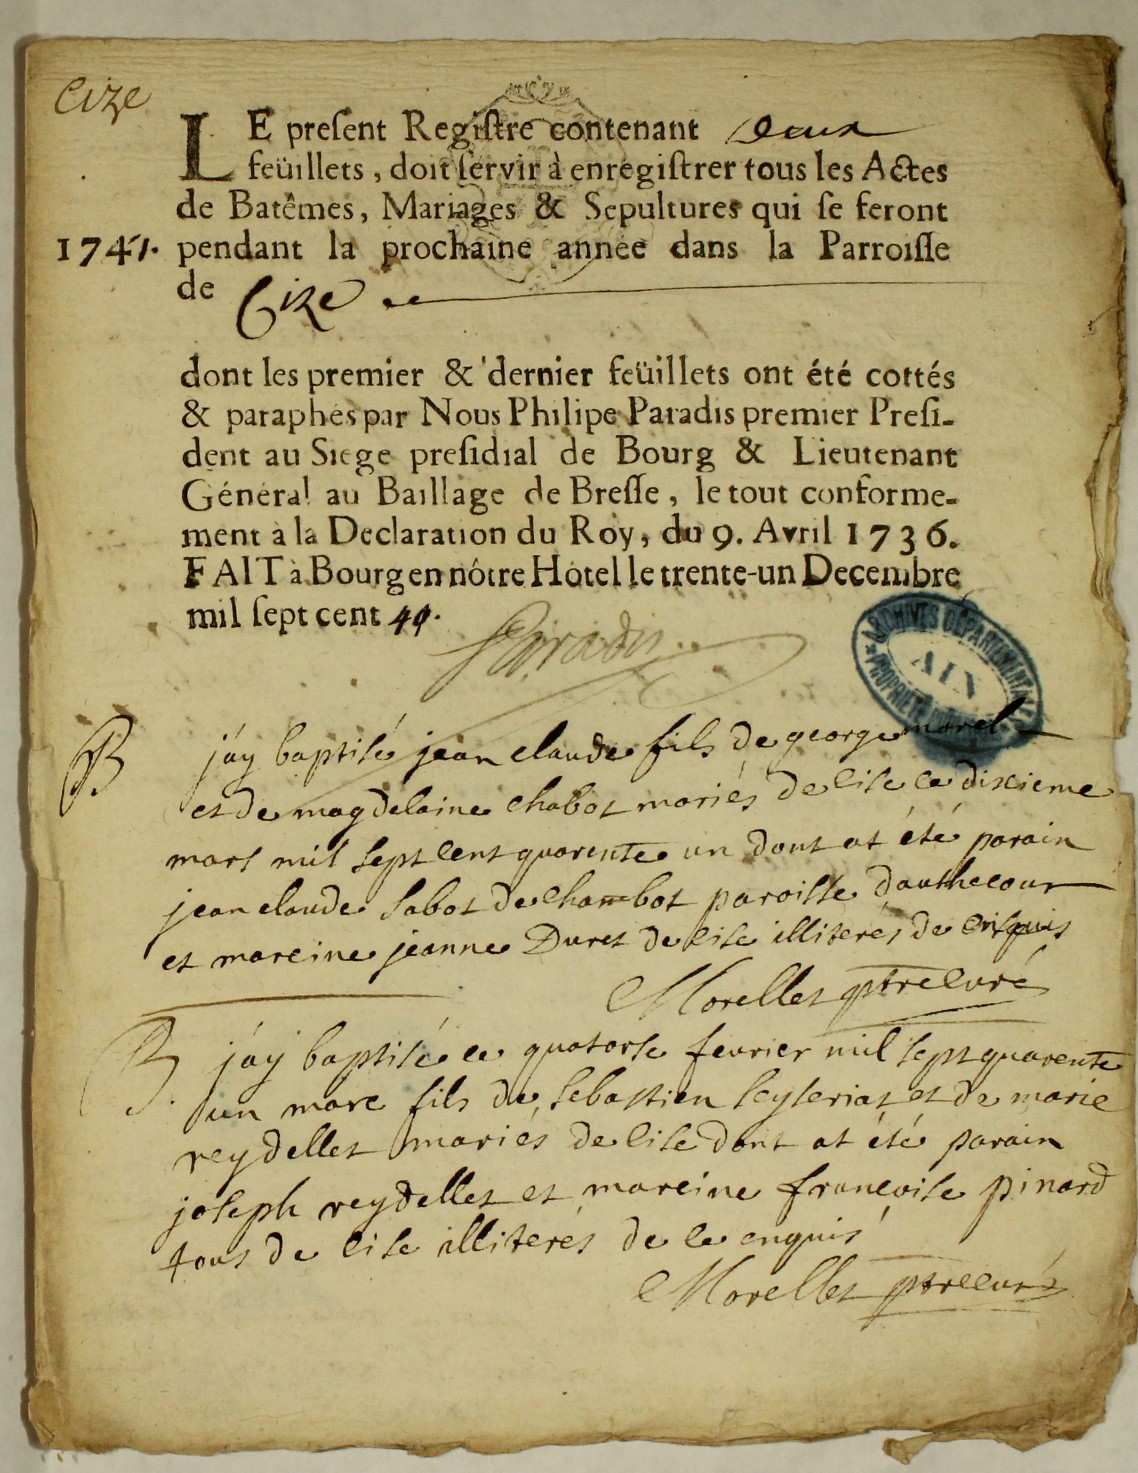 Cize
LE preſent Regiſtre contenant deux
feüillets, doit ſervir à enregiſtrer tous les Actes
de Batêmes, Mariages & Sepultures qui ſe feront
1741. pendant la prochaine année dans la Parroiſſe
de Cize
dont les premier & dernier feüillets ont été cottés
& paraphés par Nous Philipe Paradis premier Preſi-
dent au Siege preſidial de Bourg & Lieutenant
Général au Baillage de Breſſe, le tout conforme-
ment à la Declaration du Roy, du 9. Avril 1736.
FAIT à Bourg en nôtre Hôtel le trente-un Decembre
mil ſept cent 40.
Paradis
ARCHIVES DÉPARTEMENTALES
AIN
PROPRIÉTÉ
B jáy baptisé jean claude fils de george morel
et de magdelaine chabot mariés de cise ce dixieme
mars mil sept cent quarente un dont at été parain
jean claude sabot de chambot paroisse d'authecour
et mareine jeanne Duret de cise illiterés de
Morellet ptre curé
B. jáy baptisé ce quatorse feurier mil sept quarente
un marc fils de sebastien seyseriat et de marie
reydellet mariés de cise dont at été parain
joseph reydellet et mareine françoise pinard
tous de cise illiterés de ce enquis
Morellet ptre curé